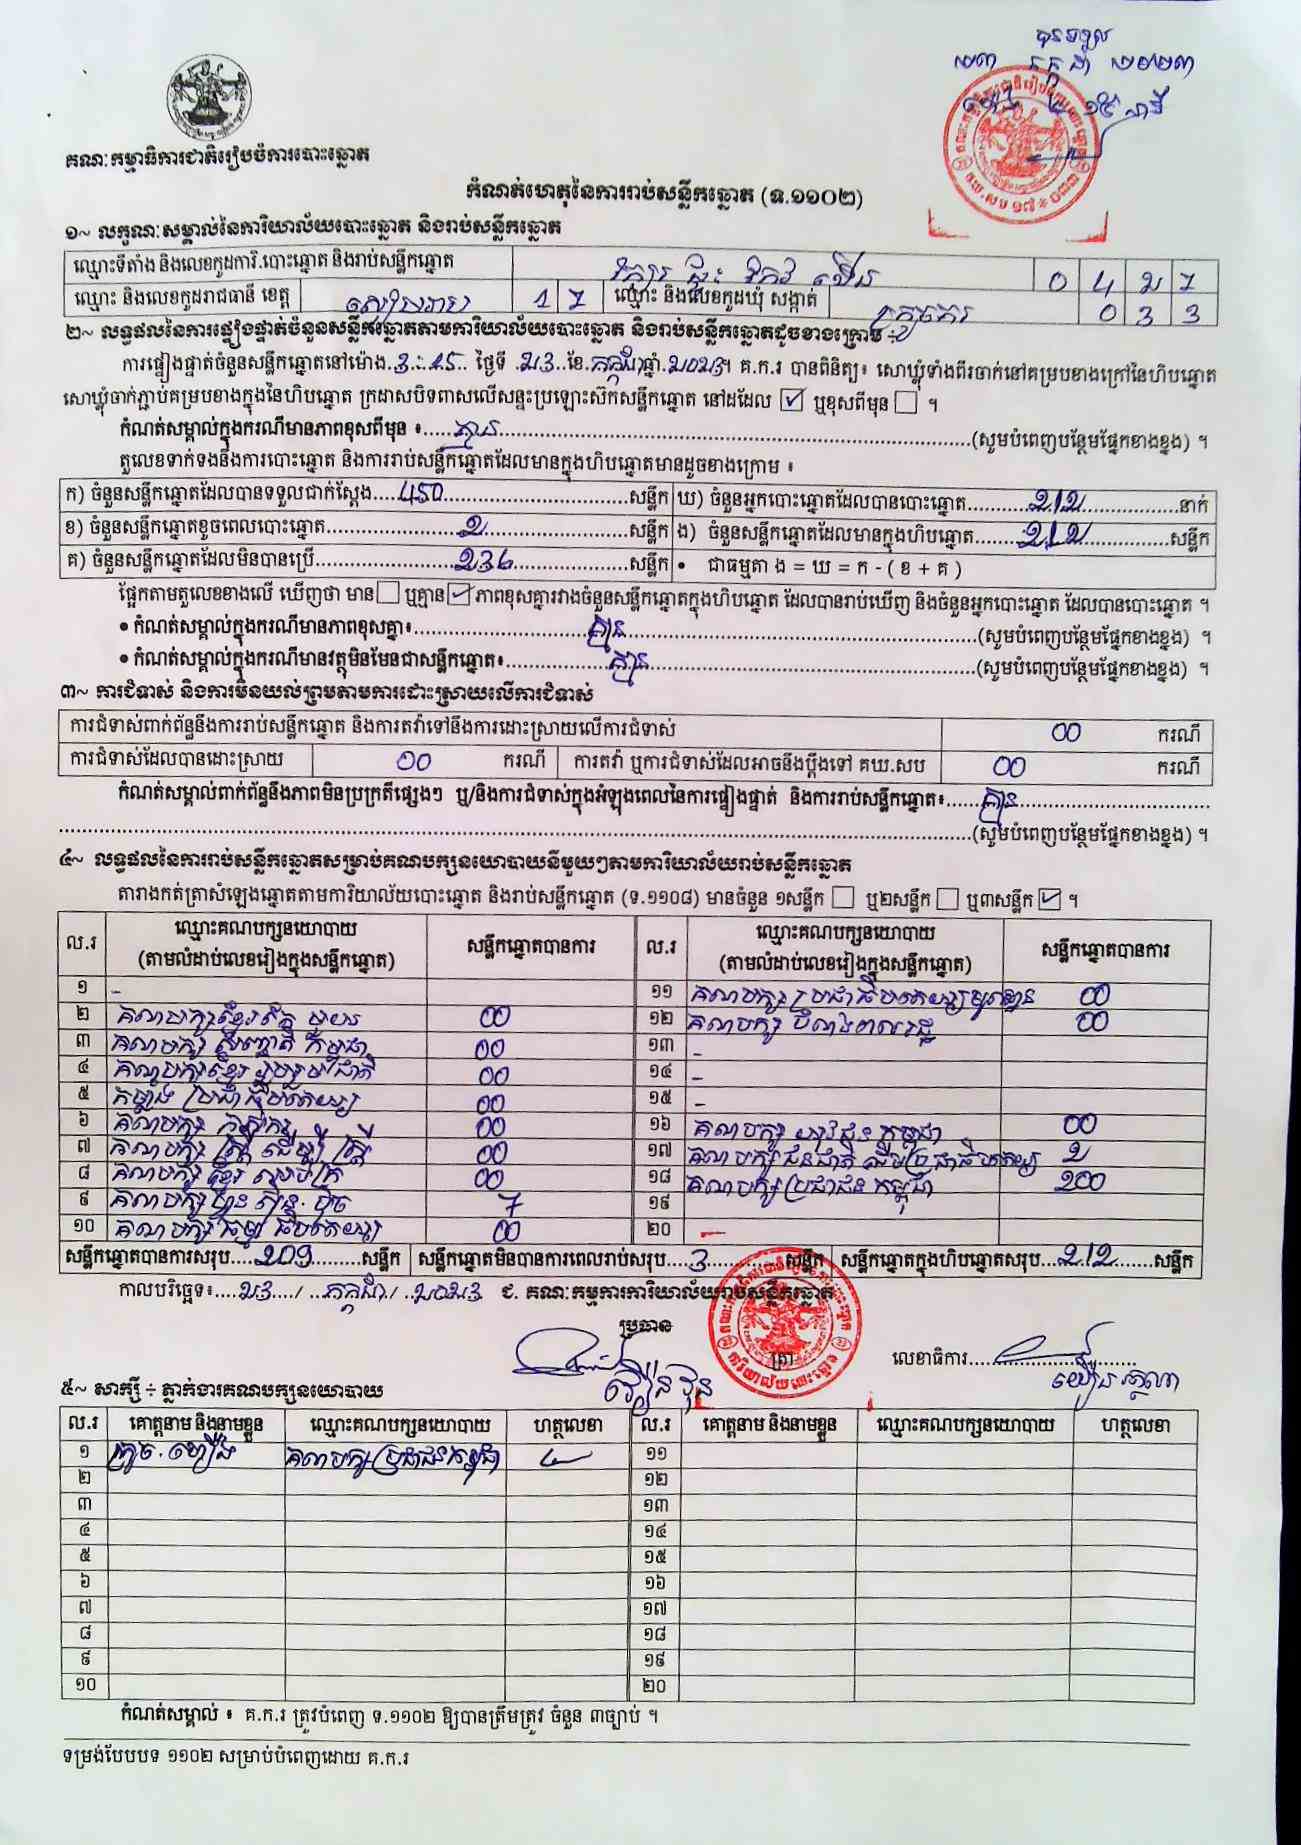 បានទទួល
២៣ កក្កដា ២០២៣
គណៈកម្មាធិការជាតិរៀបចំការបោះឆ្នោត
កំណត់ហេតុនៃការរាប់សន្លឹកឆ្នោត (ទ.១១០២)
១~ លក្ខណៈសម្គាល់នៃការិយាល័យបោះឆ្នោត និងរាប់សន្លឹកឆ្នោត
ឈ្មោះទីតាំង និងលេខកូដការិ.បោះឆ្នោត និងរាប់សន្លឹកឆ្នោត
ឈ្មោះ និងលេខកូដរាជធានី ខេត្ត សៀមរាប 1 7 ឈ្មោះ និងលេខកូដឃុំ សង្កាត់ 0 3 3
២~ លទ្ធផលនៃការផ្ទៀងផ្ទាត់ចំនួនសន្លឹកឆ្នោតតាមការិយាល័យបោះឆ្នោត និងរាប់សន្លឹកឆ្នោតដូចខាងក្រោម ÷
ការផ្ទៀងផ្ទាត់ចំនួនសន្លឹកឆ្នោតនៅម៉ោង.3:15.. ថ្ងៃទី..២3..ខែ.កក្កដា.ឆ្នាំ.២០២3។ គ.ក.រ បានពិនិត្យ៖ សោឃ្លុំទាំងពីរចាក់នៅគម្របខាងក្រៅនៃហិបឆ្នោត
សោឃ្លុំចាក់ភ្ជាប់គម្របខាងក្នុងនៃហិបឆ្នោត ក្រដាសបិទពាសលើសន្ទះប្រឡោះស៊កសន្លឹកឆ្នោត នៅដដែល ☑ ឬខុសពីមុន ☐ ។
កំណត់សម្គាល់ក្នុងករណីមានភាពខុសពីមុន ៖.....គ្មាន.....(សូមបំពេញបន្ថែមផ្នែកខាងខ្នង) ។
តួលេខទាក់ទងនឹងការបោះឆ្នោត និងការរាប់សន្លឹកឆ្នោតដែលមានក្នុងហិបឆ្នោតមានដូចខាងក្រោម ៖
ក) ចំនួនសន្លឹកឆ្នោតដែលបានទទួលជាក់ស្តែង....450....សន្លឹក ឃ) ចំនួនអ្នកបោះឆ្នោតដែលបានបោះឆ្នោត....212....នាក់
ខ) ចំនួនសន្លឹកឆ្នោតខូចពេលបោះឆ្នោត....2....សន្លឹក ង) ចំនួនសន្លឹកឆ្នោតដែលមានក្នុងហិបឆ្នោត....212....សន្លឹក
គ) ចំនួនសន្លឹកឆ្នោតដែលមិនបានប្រើ....236....សន្លឹក • ជាធម្មតា ង = ឃ = ក - ( ខ + គ )
ផ្អែកតាមតួលេខខាងលើ ឃើញថា មាន ☐ ឬគ្មាន ☑ ភាពខុសគ្នារវាងចំនួនសន្លឹកឆ្នោតក្នុងហិបឆ្នោត ដែលបានរាប់ឃើញ និងចំនួនអ្នកបោះឆ្នោត ដែលបានបោះឆ្នោត ។
• កំណត់សម្គាល់ក្នុងករណីមានភាពខុសគ្នា៖....គ្មាន....(សូមបំពេញបន្ថែមផ្នែកខាងខ្នង) ។
• កំណត់សម្គាល់ក្នុងករណីមានវត្ថុមិនមែនជាសន្លឹកឆ្នោត៖....គ្មាន....(សូមបំពេញបន្ថែមផ្នែកខាងខ្នង) ។
៣~ ការជំទាស់ និងការមិនយល់ព្រមតាមការដោះស្រាយលើការជំទាស់
ការជំទាស់ពាក់ព័ន្ធនឹងការរាប់សន្លឹកឆ្នោត និងការតវ៉ាទៅនឹងការដោះស្រាយលើការជំទាស់ 00 ករណី
ការជំទាស់ដែលបានដោះស្រាយ 00 ករណី ការតវ៉ា ឬការជំទាស់ដែលអាចនឹងប្តឹងទៅ គឃ.សប 00 ករណី
កំណត់សម្គាល់ពាក់ព័ន្ធនឹងភាពមិនប្រក្រតីផ្សេងៗ ឬ/និងការជំទាស់ក្នុងអំឡុងពេលនៃការផ្ទៀងផ្ទាត់ និងការរាប់សន្លឹកឆ្នោត៖....គ្មាន....
(សូមបំពេញបន្ថែមផ្នែកខាងខ្នង) ។
៤~ លទ្ធផលនៃការរាប់សន្លឹកឆ្នោតសម្រាប់គណបក្សនយោបាយនីមួយៗតាមការិយាល័យរាប់សន្លឹកឆ្នោត
តារាងកត់ត្រាសំឡេងឆ្នោតតាមការិយាល័យបោះឆ្នោត និងរាប់សន្លឹកឆ្នោត (ទ.១១០៨) មានចំនួន ១សន្លឹក ☐ ឬ២សន្លឹក ☐ ឬ៣សន្លឹក ☑ ។
ល.រ ឈ្មោះគណបក្សនយោបាយ (តាមលំដាប់លេខរៀងក្នុងសន្លឹកឆ្នោត) សន្លឹកឆ្នោតបានការ ល.រ ឈ្មោះគណបក្សនយោបាយ (តាមលំដាប់លេខរៀងក្នុងសន្លឹកឆ្នោត) សន្លឹកឆ្នោតបានការ
១ - ១១ គណបក្ស ប្រជាធិបតេយ្យមូលដ្ឋាន 00
២ គណបក្សខ្មែរតែមួយ 00 ១២ គណបក្ស បំពេញពលរដ្ឋ 00
៣ គណបក្ស សញ្ជាតិ កម្ពុជា 00 ១៣ -
៤ គណបក្សខ្មែរ រួបរួមជាតិ 00 ១៤ -
៥ កម្លាំង ប្រជាធិបតេយ្យ 00 ១៥ -
៦ គណបក្ស កសិករ 00 ១៦ គណបក្ស យុវជន កម្ពុជា 00
៧ គណបក្ស ស្ត្រី ដើម្បី ស្ត្រី 00 ១៧ គណបក្ស ជនជាតិដើមប្រជាធិបតេយ្យ 2
៨ គណបក្ស ខ្មែរ 00 ១៨ គណបក្ស ប្រជាជន កម្ពុជា 200
៩ គណបក្ស ហ៊្វុនស៊ិនប៉ិច 7 ១៩
១០ គណបក្ស ធម្មាធិបតេយ្យ 00 ២០ -
សន្លឹកឆ្នោតបានការសរុប....209....សន្លឹក សន្លឹកឆ្នោតមិនបានការពេលរាប់សរុប....3....សន្លឹក សន្លឹកឆ្នោតក្នុងហិបឆ្នោតសរុប....212....សន្លឹក
កាលបរិច្ឆេទ៖....២3..../..កក្កដា/..២០២3 ជ. គណៈកម្មការការិយាល័យរាប់សន្លឹកឆ្នោត
ប្រធាន
ត្រា លេខាធិការ
៥~ សាក្សី ÷ ភ្នាក់ងារគណបក្សនយោបាយ
ល.រ គោត្តនាម និងនាមខ្លួន ឈ្មោះគណបក្សនយោបាយ ហត្ថលេខា ល.រ គោត្តនាម និងនាមខ្លួន ឈ្មោះគណបក្សនយោបាយ ហត្ថលេខា
១ គណបក្សប្រជាជនកម្ពុជា ១១
២ ១២
៣ ១៣
៤ ១៤
៥ ១៥
៦ ១៦
៧ ១៧
៨ ១៨
៩ ១៩
១០ ២០
កំណត់សម្គាល់ ៖ គ.ក.រ ត្រូវបំពេញ ទ.១១០២ ឱ្យបានត្រឹមត្រូវ ចំនួន ៣ច្បាប់ ។
ទម្រង់បែបបទ ១១០២ សម្រាប់បំពេញដោយ គ.ក.រ